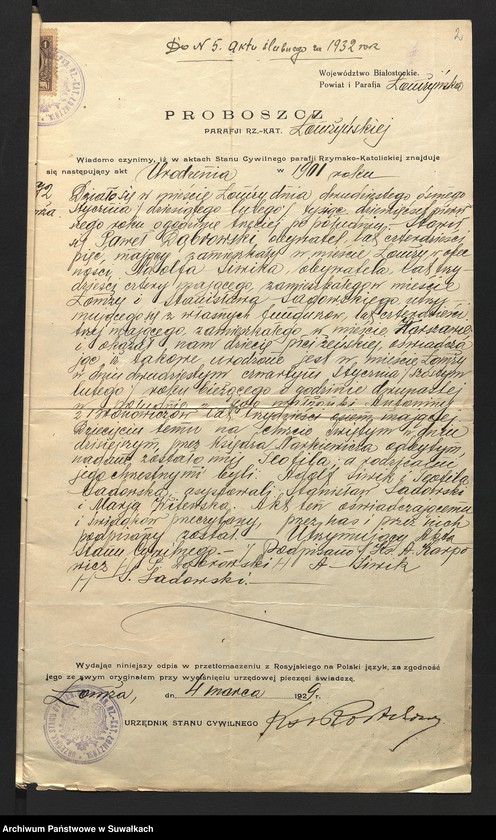 Do N 5. Aktu ślubnego za 1932 rok
2
Województwo Białostockie.
Powiat i Parafja Łomżyńska
PROBOSZCZ
PARAFJI RZ.-KAT. Łomżyńskiej
Wiadomo czynimy, iż w aktach Stanu Cywilnego parafji Rzymsko-Katolickiej znajduje
się następujący akt Urodzenia w 1901 roku
Działo się w mieście Łomży dnia dwudziestego ósmego
Stycznia / dziesiątego lutego / tysiąc dziewięćset pierw-
szego roku o godzinie trzeciej po południu. Stawił
się Paweł Dąbrowski, obywatel, lat czterdzieści
pięć mający, zamieszkały w mieście Łomży w obec-
ności Adolfa Siwika, obywatela, lat trzy-
dzieści cztery mającego, zamieszkałego w mieście
Łomży i Stanisława Sadowskiego utrzy-
mującego się z własnych funduszów, lat czterdzieści
trzy mającego, zamieszkałego w mieście Warszawie
i okazał nam dziecię płci żeńskiej, oświadcza-
jąc, iż takowe urodzone jest w mieście Łomży
w dniu dwudziestym czwartym Stycznia / szóstym
lutego / roku bieżącego o godzinie dwunastej
w z jego małżonki Antoniny
z lat trzydzieści osiem mającej
Dziecięciu temu na Chrzcie Świętym w dniu
dzisiejszym przez Księdza odbytym,
nadane zostało imię Teofila, a rodzicami
jego chrzestnymi byli: Adolf Siwik i Teofila
Sadowska, asystowali Stanisław Sadowski
i Marja. Akt ten oświadczającemu
i świadkom przeczytany, przez nas i przez nich
podpisany został. Utrzymujący Akta
Stanu Cywilnego. – / Podpisano / Ks. A. Karpo-
wicz /-/ P. Dąbrowski /-/ A. Siwik
/-/ S. Sadowski.
Wydając niniejszy odpis w przetłomaczeniu z Rosyjskiego na Polski język, za zgodność
jego ze swym oryginałem przy wyciśnięciu urzędowej pieczęci świadczę.
Łomża, dn. 4 marca 1929 r.
URZĘDNIK STANU CYWILNEGO
Archiwum Państwowe w Suwałkach